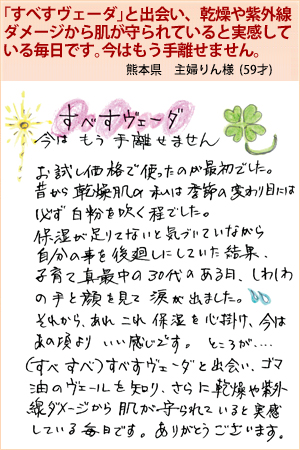 「すべすヴェーダ」と出会い、乾燥や紫外線
ダメージから肌が守られていると実感して
いる毎日です。今はもう手離せません。
熊本県 主婦りん様 (59才)
すべすヴェーダ
今は もう 手離せません
お試し価格で使ったのが最初でした。
昔から乾燥肌の私は季節の変わり目には
必ず白粉を吹く程でした。
保湿が足りてないと気づいていながら
自分の事を後廻しにしていた結果、
子育て真最中の30代のある日、しわしわ
の手と顔を見て涙が出ました。
それから、あれこれ保湿を心掛け、今は
あの頃より いい感じです。 ところが....
(すべすべ)すべすヴェーダと出会い、ゴマ
油のヴェールを知り、さらに乾燥や紫外
線ダメージから肌が守られていると実感
している毎日です。ありがとうございます。